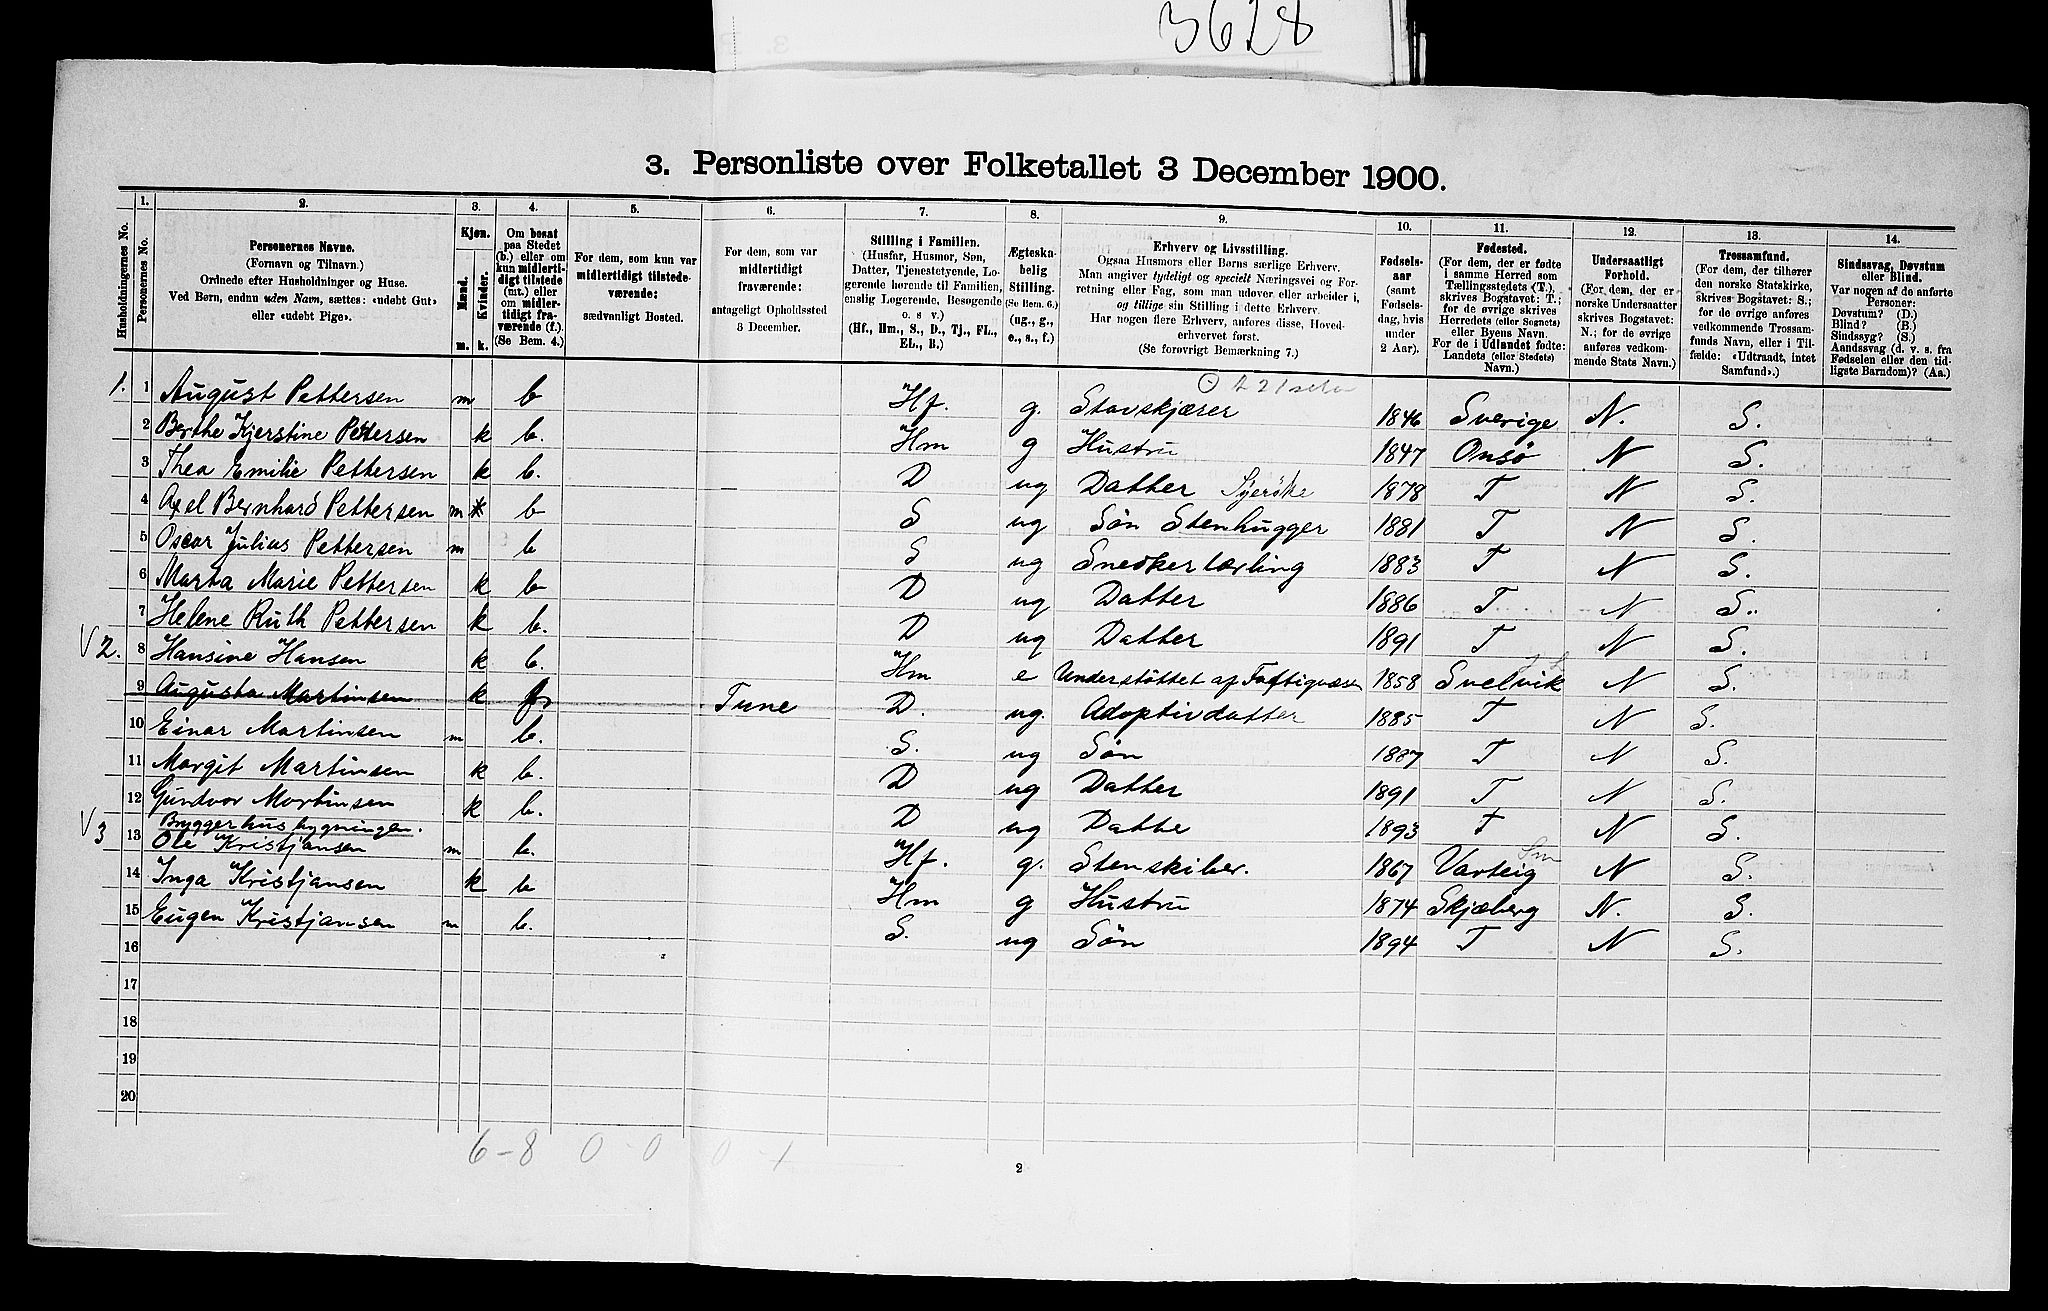 3628
3. Personliste over Folketallet 3 December 1900.
Husholdningernes No.
1. Personernes No.
2. Personernes Navne. (Fornavn og Tilnavn.) Ordnede efter Husholdninger og Huse. Ved Børn, endnu uden Navn, sættes: «udøbt Gut» eller «udøbt Pige».
3. Kjøn. Mænd. m. Kvinder. k.
4. Om bosat paa Stedet (b.) eller om kun midlertidigt tilstede (mt.) eller om midlertidigt fraværende (f.). (Se Bem. 4.)
5. For dem, som kun var midlertidigt tilstedeværende: sædvanligt Bosted.
6. For dem, som var midlertidigt fraværende: antageligt Opholdssted 3 December.
7. Stilling i Familien. (Husfar, Husmor, Søn, Datter, Tjenestetyende, Logerende hørende til Familien, enslig Logerende, Besøgende o. s v.) (Hf., Hm., S., D., Tj., FL., EL., B.)
8. Ægteskabelig Stilling. (Se Bem. 6.) (ug., g., e., s., f.)
9. Erhverv og Livsstilling. Ogsaa Husmors eller Børns særlige Erhverv. Man angiver tydeligt og specielt Næringsvei og Forretning eller Fag, som man udøver eller arbeider i, og tillige sin Stilling i dette Erhverv. Har nogen flere Erhverv, anføres disse, Hoved-erhvervet først. (Se forøvrigt Bemærkning 7.)
10. Fødselsaar (samt Fødselsdag, hvis under 2 Aar).
11. Fødested. (For dem, der er fødte i samme Herred som Tællingsstedets (T.), skrives Bogstavet: T.; for de øvrige skrives Herredets (eller Sognets) eller Byens Navn. For de i Udlandet fødte: Landets (eller Stedets) Navn.)
12. Undersaatligt Forhold. (For dem, der er norske Undersaatter skrives Bogstavet: N.; for de øvrige anføres vedkommende Stats Navn.)
13. Trossamfund. (For dem, der tilhører den norske Statskirke, skrives Bogstavet: S.; for de øvrige anføres vedkommende Trossamfunds Navn, eller i Tilfælde: «Udtraadt, intet Samfund».)
14. Sindssvag, Døvstum eller Blind. Var nogen af de anførte Personer: Døvstum? (D.) Blind? (B.) Sindssyg? (S.) Aandssvag (d. v. s. fra Fødselen eller den tidligste Barndom)? (Aa.)
1. 1 August Pettersen m b Hf. g. Stavskjærer 1846 Sverige N. S.
2 Berthe Kjerstine Pettersen k b. Hm g Hustru 1847 Onsø N S.
3 Thea Emilie Pettersen k b. D ug Datter Syerske 1878 T N S.
4 Axel Bernhard Pettersen m b S ug Søn Stenhugger 1881 T N S.
5 Oscar Julius Pettersen m b S ug Snedkerlærling 1883 T N S.
6 Marta Marie Pettersen k b D ug Datter 1886 T N S.
7 Helene Ruth Pettersen k b. D ug Datter 1891 T N S.
V 2. 8 Hansine Hansen k b. Hm e Understøttet af Fattigvæsen 1858 Svelvik N S.
9 Augusta Martinsen k f Tune D. ug. Adoptivdatter 1885 T N S.
10 Einar Martinsen m b. S. ug Søn 1887 T N S.
11 Margit Martinsen k b. D ug Datter 1891 T N S.
12 Gundvor Martinsen k b. D ug Datte 1893 T N S.
Bryggerhusbygningen.
V 3 13 Ole Kristjansen m b. Hf. g. Stenskiber. 1867 Varteig N S.
14 Inga Kristjansen k b Hm g Hustru 1874 Skjæberg N. S.
15 Eugen Kristjansen m b. S. ug Søn 1894 T N S.
16
17
18
19
20
6 - 8 0 - 0 0 - 1
2